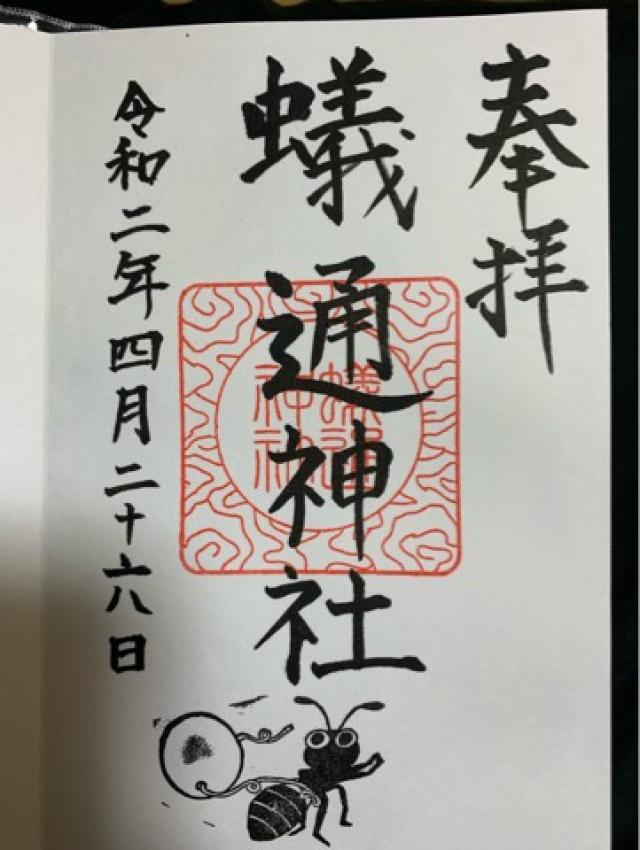 奉拝
蟻通神社
令和二年四月二十六日
蟻通
神社